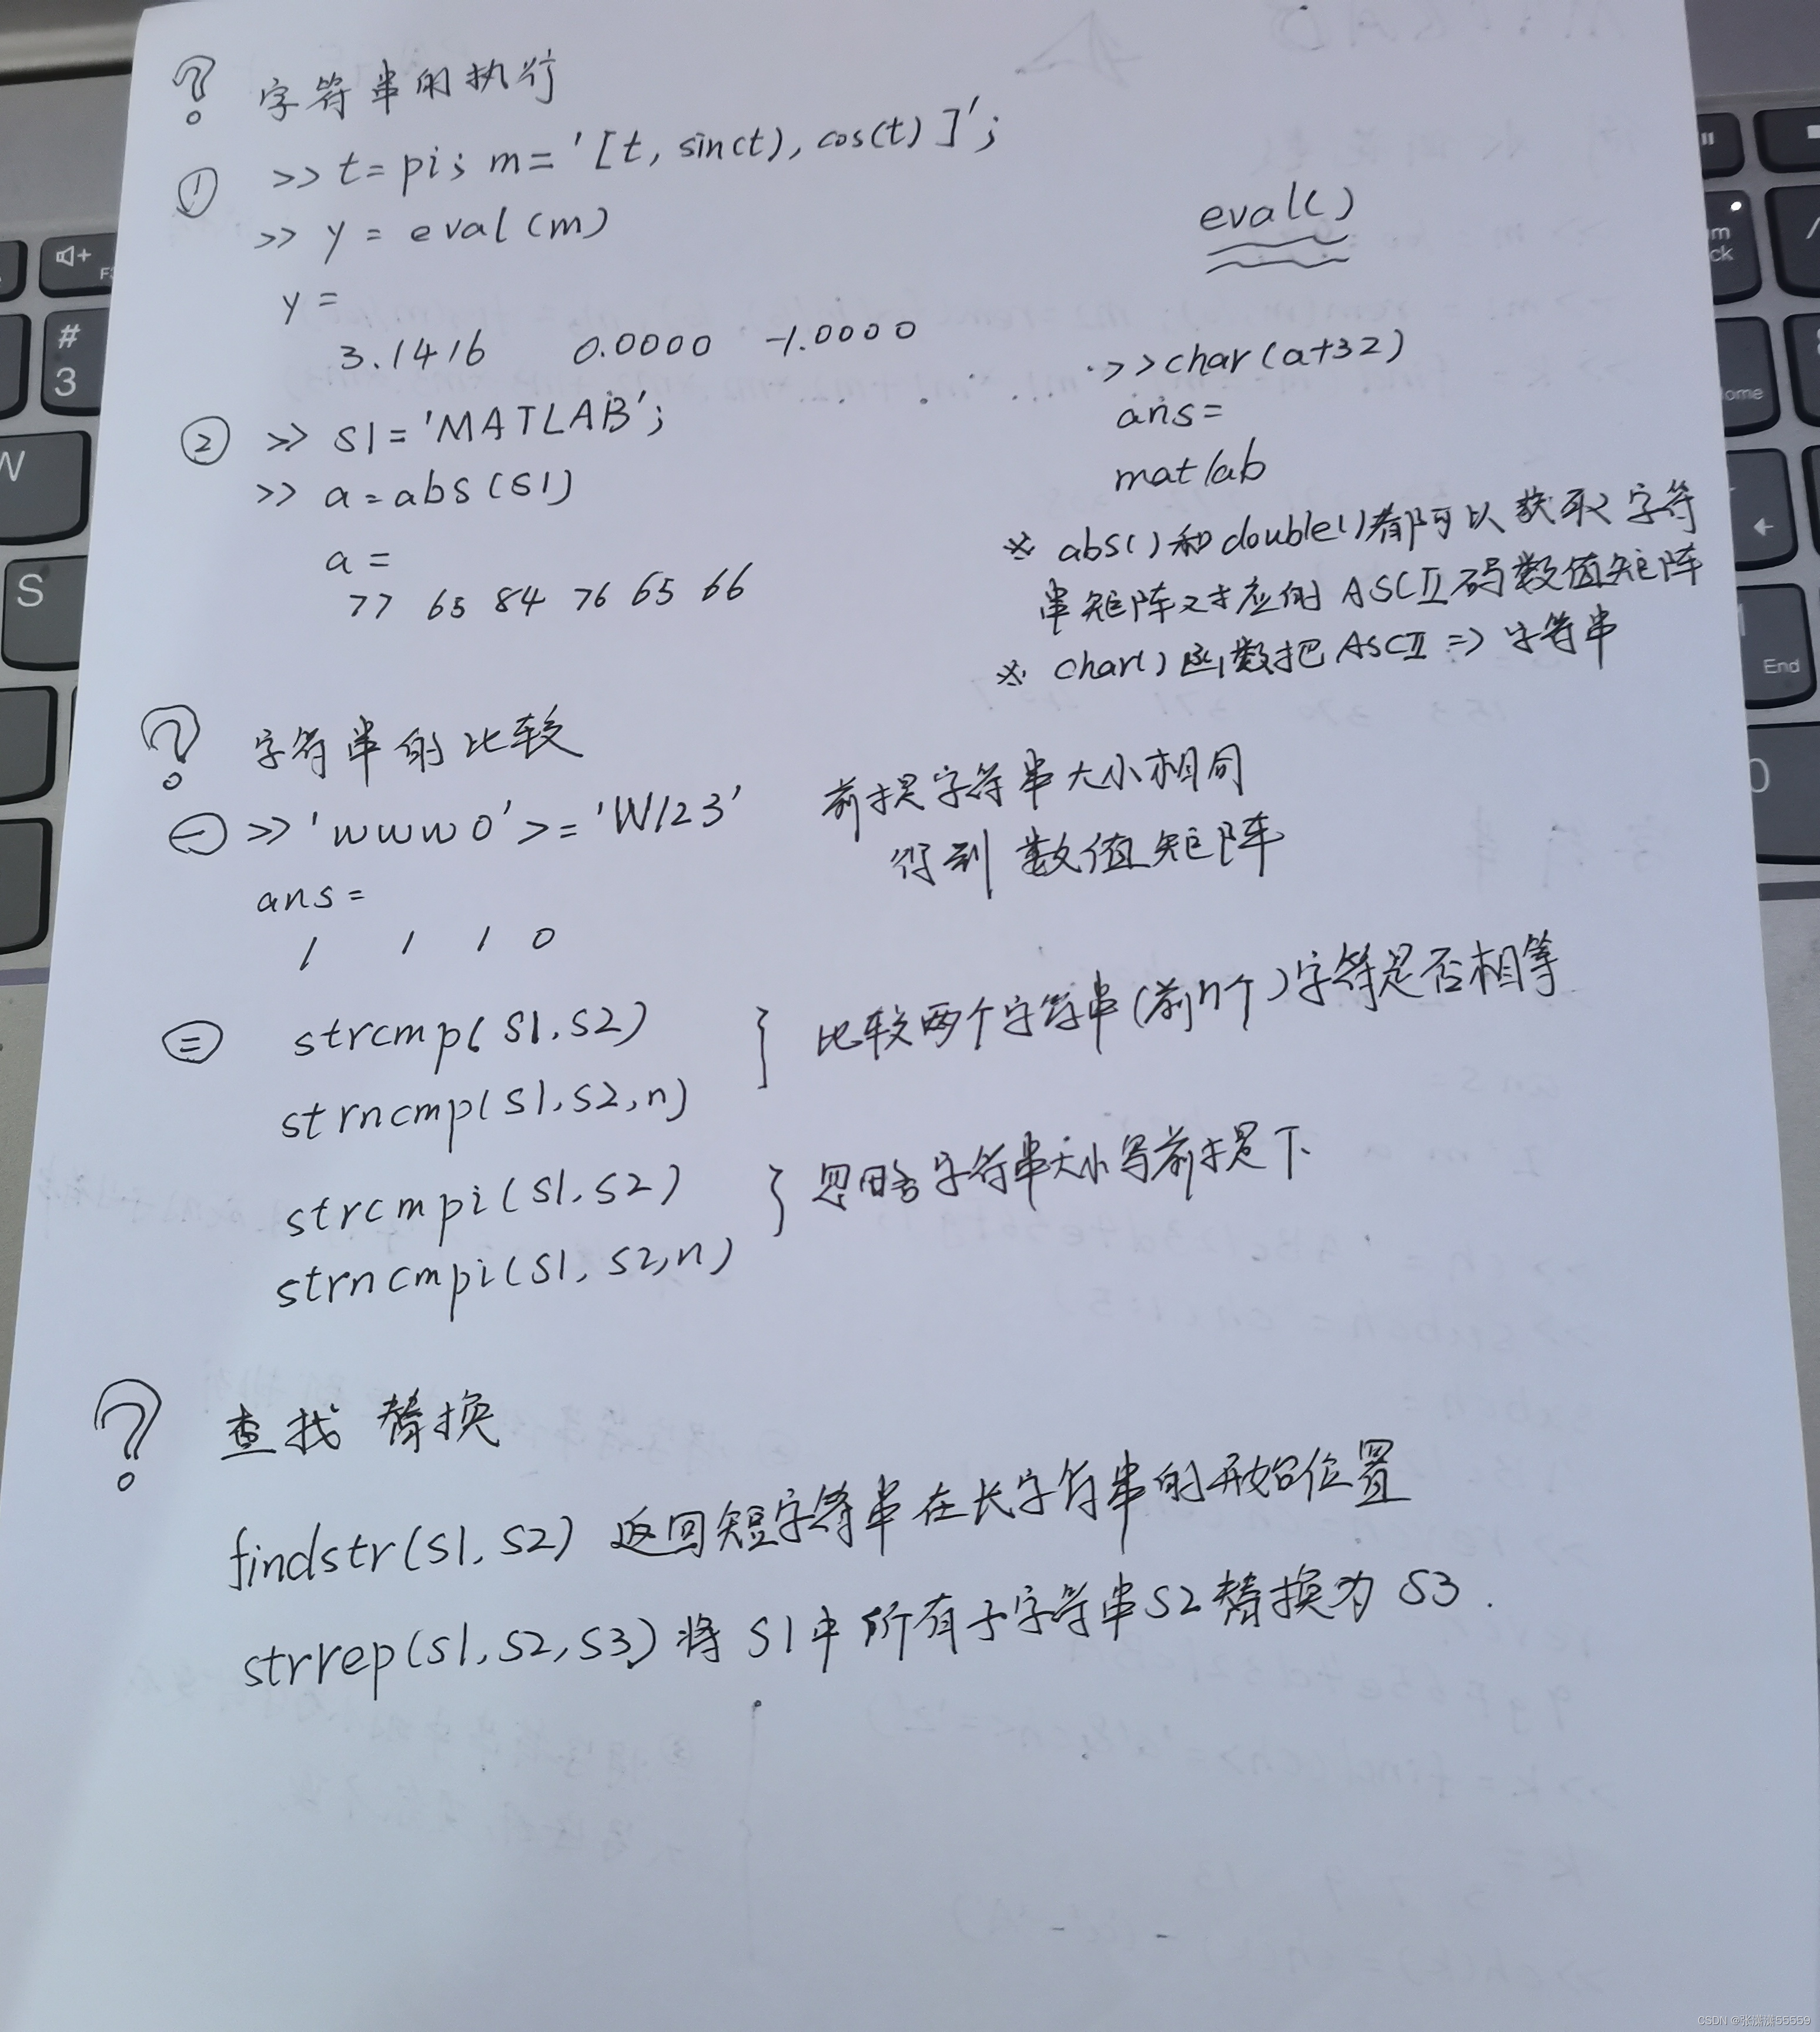 字符串的执行
① >> t=pi; m='[t, sin(t), cos(t)]';
>> y = eval(m)
eval()
y =
3.1416 0.0000 -1.0000
② >> s1='MATLAB';
>> a=abs(s1)
a =
77 65 84 76 65 66
>> char(a+32)
ans=
matlab
※ abs()和double()都可以获取字符
串矩阵对应的ASCⅡ码数值矩阵
※ char()函数把ASCⅡ=>字符串
字符串的比较
㊀ >> 'www0'>='W123' 前提字符串大小相同
得到数值矩阵
ans=
1 1 1 0
㊁ strcmp(s1,s2)
strncmp(s1,s2,n)
} 比较两个字符串(前n个)字符是否相等
strcmpi(s1,s2)
strncmpi(s1,s2,n)
} 忽略字符串大小写前提下
查找 替换
findstr(s1,s2) 返回短字符串在长字符串的开始位置
strrep(s1,s2,s3) 将s1中所有子字符串s2替换为s3.
# 3
W
S
F
End
CSDN @张潇潇55559